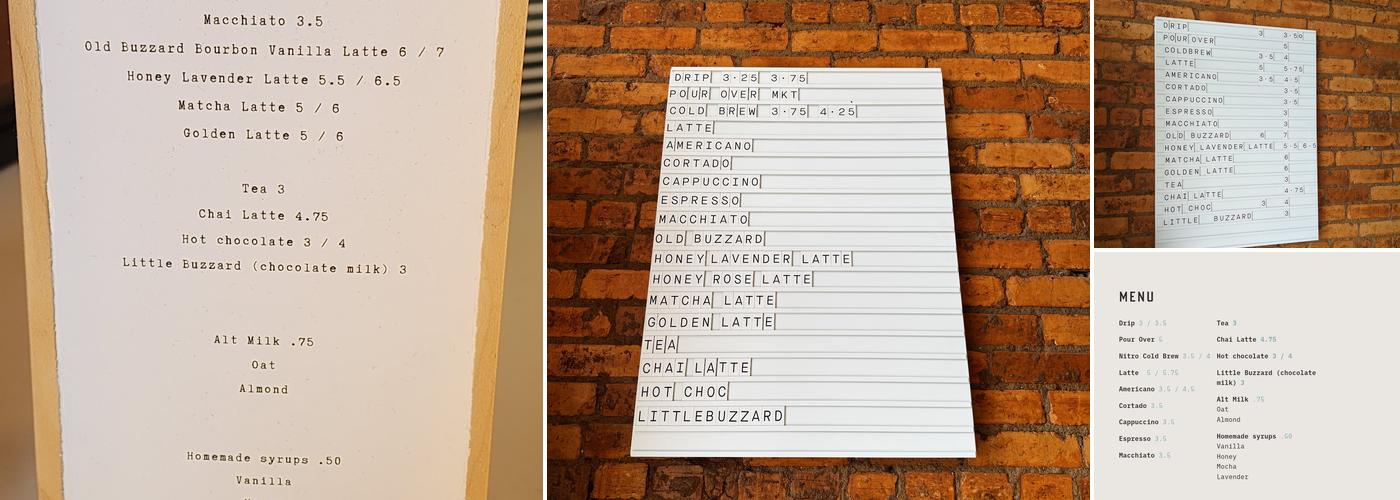 Macchiato 3.5
Old Buzzard Bourbon Vanilla Latte 6 / 7
Honey Lavender Latte 5.5 / 6.5
Matcha Latte 5 / 6
Golden Latte 5 / 6
Tea 3
Chai Latte 4.75
Hot chocolate 3 / 4
Little Buzzard (chocolate milk) 3
Alt Milk .75
Oat
Almond
Homemade syrups .50
Vanilla
DRIP 3·25 3·75
POUR OVER MKT
COLD BREW 3·75 4·25
LATTE
AMERICANO
CORTADO
CAPPUCCINO
ESPRESSO
MACCHIATO
OLD BUZZARD
HONEY LAVENDER LATTE
HONEY ROSE LATTE
MATCHA LATTE
GOLDEN LATTE
TEA
CHAI LATTE
HOT CHOC
LITTLEBUZZARD
DRIP 3 3·50
POUR OVER 5
COLDBREW 3·5 4
LATTE 5 5·75
AMERICANO 3·5 4·5
CORTADO 3·5
CAPPUCCINO 3·5
ESPRESSO 3
MACCHIATO 3
OLD BUZZARD 6 7
HONEY LAVENDER LATTE 5·5 6·5
MATCHA LATTE 6
GOLDEN LATTE 6
TEA 3
CHAI LATTE 4·75
HOT CHOC 3 4
LITTLE BUZZARD 3
MENU
Drip 3 / 3.5
Pour Over 5
Nitro Cold Brew 3.5 / 4
Latte 5 / 5.75
Americano 3.5 / 4.5
Cortado 3.5
Cappuccino 3.5
Espresso 3.5
Macchiato 3.5
Tea 3
Chai Latte 4.75
Hot chocolate 3 / 4
Little Buzzard (chocolate
milk) 3
Alt Milk .75
Oat
Almond
Homemade syrups .50
Vanilla
Honey
Mocha
Lavender